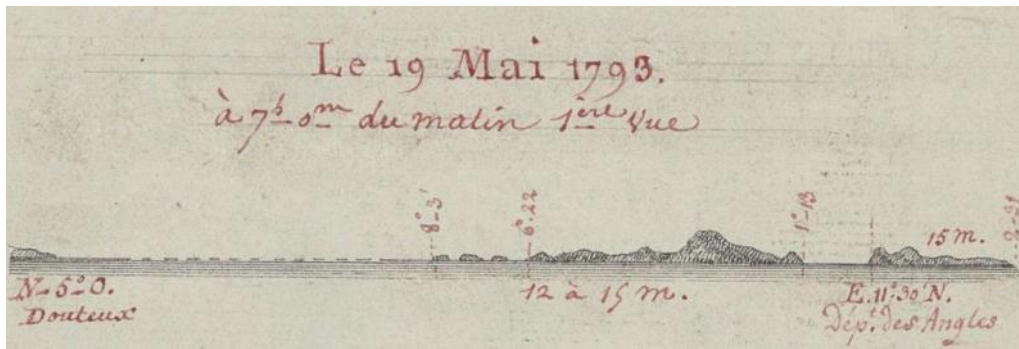 Le 19 Mai 1793.
à 7h 0m du matin 1ère Vue
8°-3'
6°-22
1°-13
2-31
15 m.
N-5°-O.
Douteux
12 à 15 m.
E. 11°-30' N.
Dépt. des Angles